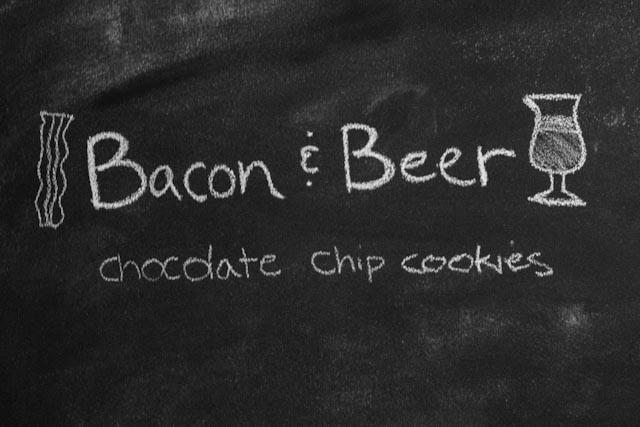 Bacon & Beer
chocolate chip cookies